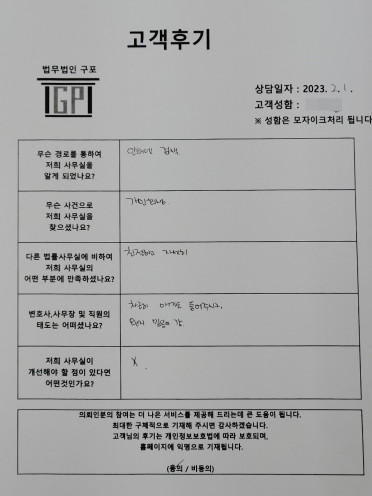 고객후기
법무법인 구포
GP
상담일자 : 2023. 2. 1.
고객성함 :
※ 성함은 모자이크처리 됩니다
무슨 경로를 통하여
저희 사무실을
알게 되었나요?
인터넷 검색
무슨 사건으로
저희 사무실을
찾으셨나요?
개인회생
다른 법률사무실에 비하여
저희 사무실의
어떤 부분에 만족하셨나요?
친절하고 자세히
변호사,사무장 및 직원의
태도는 어떠셨나요?
차분히 얘기도 들어주시고
왠지 믿음이 감
저희 사무실이
개선해야 할 점이 있다면
어떤것인가요?
X
의뢰인분의 참여는 더 나은 서비스를 제공해 드리는데 큰 도움이 됩니다.
최대한 구체적으로 기재해 주시면 감사하겠습니다.
고객님의 후기는 개인정보보호법에 따라 보호되며,
홈페이지에 익명으로 기재됩니다.
(동의 / 비동의)